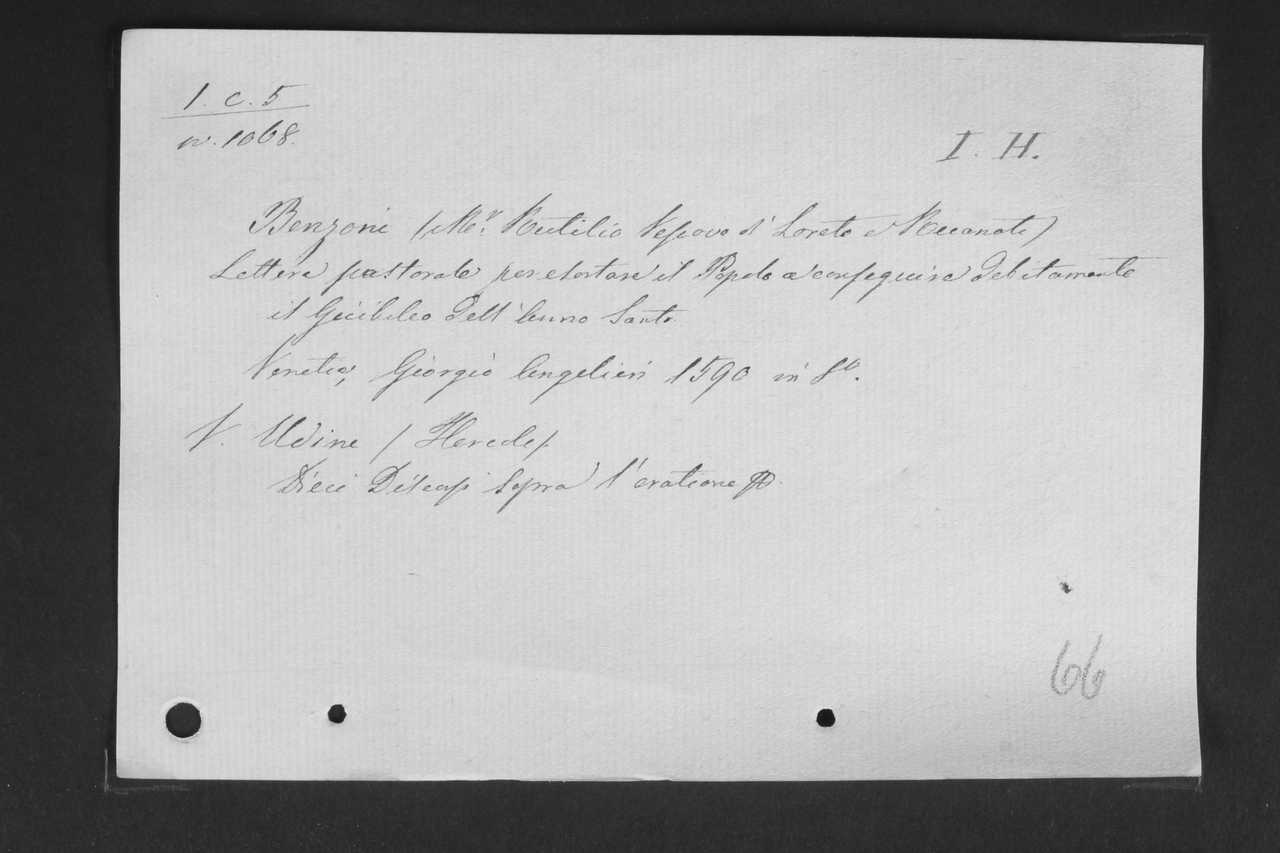 I. C. 5
n. 1068.
I. H.
Benzoni (Mr. Rutilio Vescovo di Loreto e Recanati)
Lettera pastorale per esortare il Popolo a conseguire debitamente
il Giubileo dell'Anno Santo
Venetia, Giorgio Angelieri 1590 in 8o.
V. Udine (Hercole)
Dieci Discorsi sopra l'oratione
66